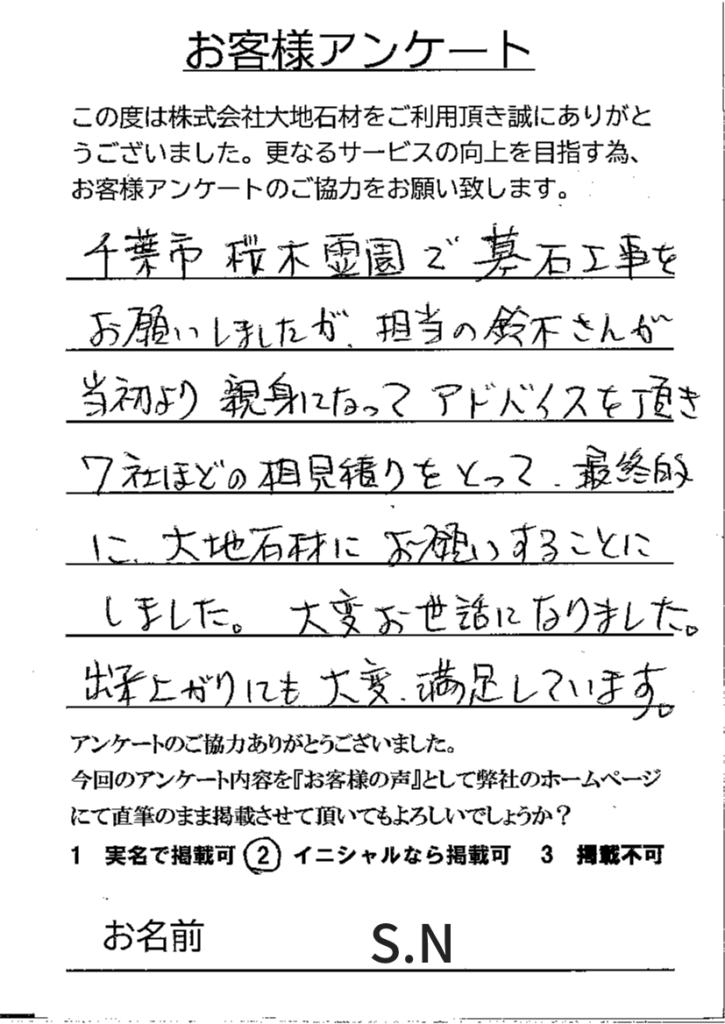 お客様アンケート
この度は株式会社大地石材をご利用頂き誠にありがと
うございました。更なるサービスの向上を目指す為、
お客様アンケートのご協力をお願い致します。
千葉市桜木霊園で墓石工事を
お願いしましたが、担当の鈴木さんが
当初より親身になってアドバイスを頂き
7社ほどの相見積りをとって、最終的
に、大地石材にお願いすることに
しました。大変お世話になりました。
出来上がりにも大変、満足しています。
アンケートのご協力ありがとうございました。
今回のアンケート内容を『お客様の声』として弊社のホームページ
にて直筆のまま掲載させて頂いてもよろしいでしょうか？
1 実名で掲載可 ② イニシャルなら掲載可 3 掲載不可
お名前 S.N